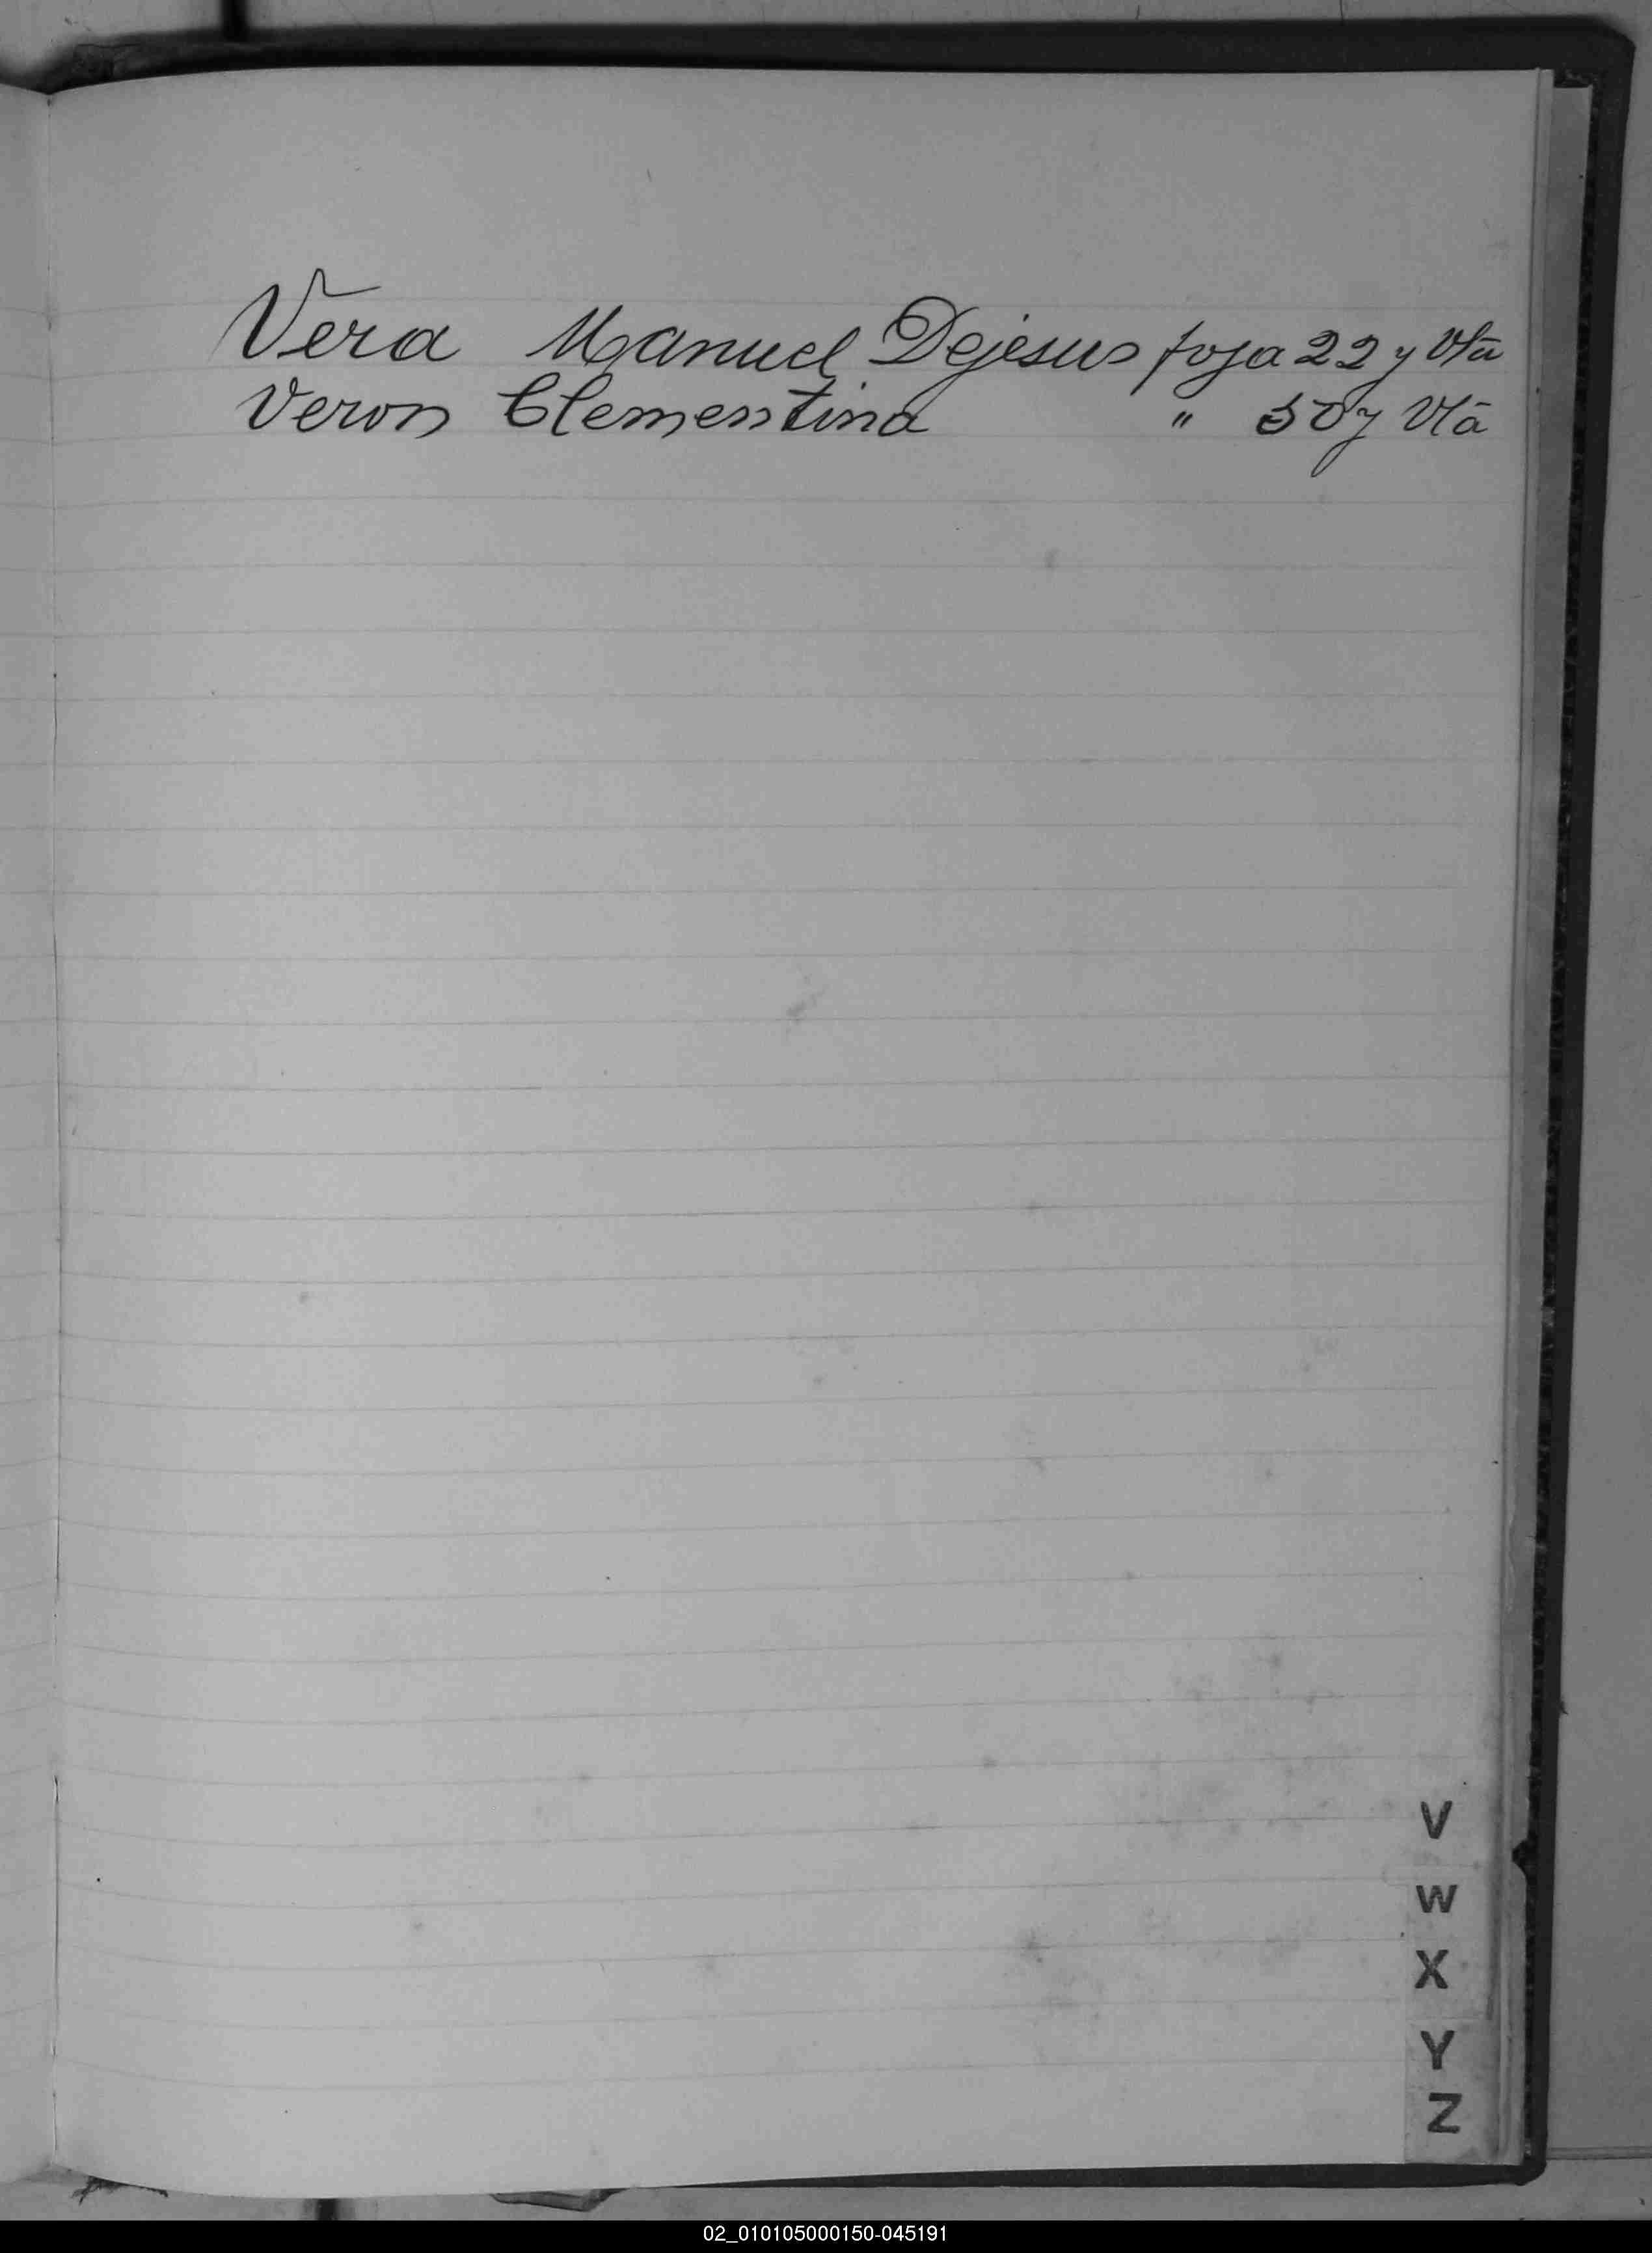 Vera Manuel Dejesus foja 22 y Vta
Veron Clementina " 50 y Vta
V
W
X
Y
Z
02_010105000150-045191